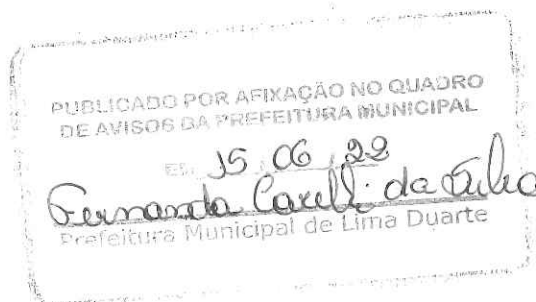 PUBLICADO POR AFIXAÇÃO NO QUADRO
DE AVISOS DA PREFEITURA MUNICIPAL
EM 15 06 22
Fernanda Carelli da Silva
Prefeitura Municipal de Lima Duarte